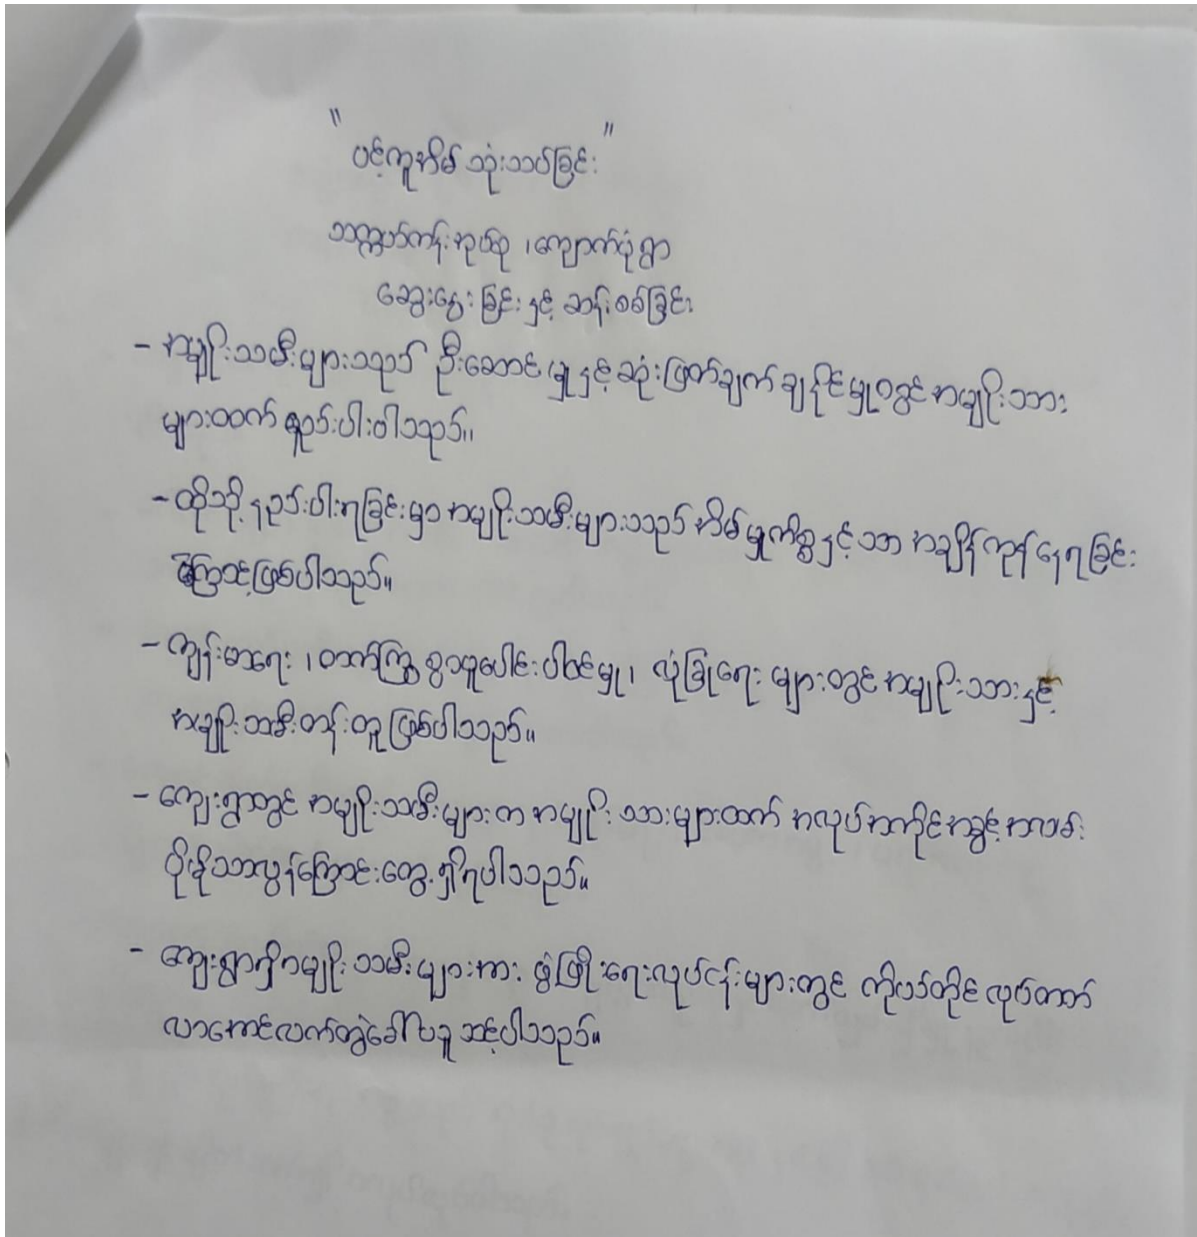 "ပင့်ကူအိမ် သုံးသပ်ခြင်း"
သက္ကယ်ကန်းအုပ်စု ၊ ကျောက်ပုံရွာ
ဆွေးနွေးခြင်းနှင့် ဆန်းစစ်ခြင်း
- အမျိုးသမီးများသည် ဦးဆောင်မှုနှင့်ဆုံးဖြတ်ချက်ချနိုင်မှုတွင် အမျိုးသား
များထက် နည်းပါးပါသည်။
- ထိုသို့နည်းပါးရခြင်းမှာ အမျိုးသမီးများသည် အိမ်မှုကိစ္စနှင့်သာ အချိန်ကုန်နေရခြင်း
ကြောင့်ဖြစ်ပါသည်။
- ကျန်းမာရေး ၊ တက်ကြွစွာပူးပေါင်းပါဝင်မှု ၊ လုံခြုံရေး များတွင် အမျိုးသားနှင့်
အမျိုးသမီးတန်းတူ ဖြစ်ပါသည်။
- ကျေးရွာတွင် အမျိုးသမီးများက အမျိုးသားများထက် အလုပ်အကိုင်အခွင့်အလမ်း
ပိုမိုသာလွန်ကြောင်းတွေ့ရှိရပါသည်။
- ကျေးရွာရှိအမျိုးသမီးများအား ဖွံ့ဖြိုးရေးလုပ်ငန်းများတွင် ကိုယ်တိုင်လုပ်တတ်
လာအောင်လက်တွဲခေါ်ယူသင့်ပါသည်။